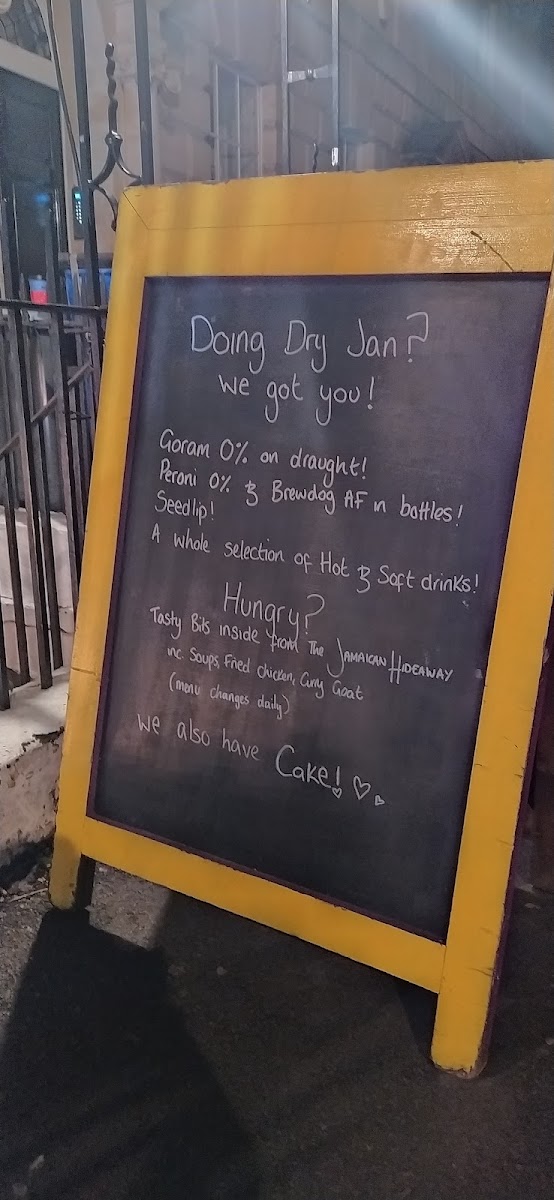 Doing Dry Jan?
We got you!
Goram 0% on draught!
Peroni 0% & Brewdog AF in bottles!
Seedlip!
A whole selection of Hot & Soft drinks!
Hungry?
Tasty Bits inside from The JAMAICAN HIDEAWAY
inc. Soups, Fried chicken, Curry Goat
(menu changes daily)
We also have Cake!